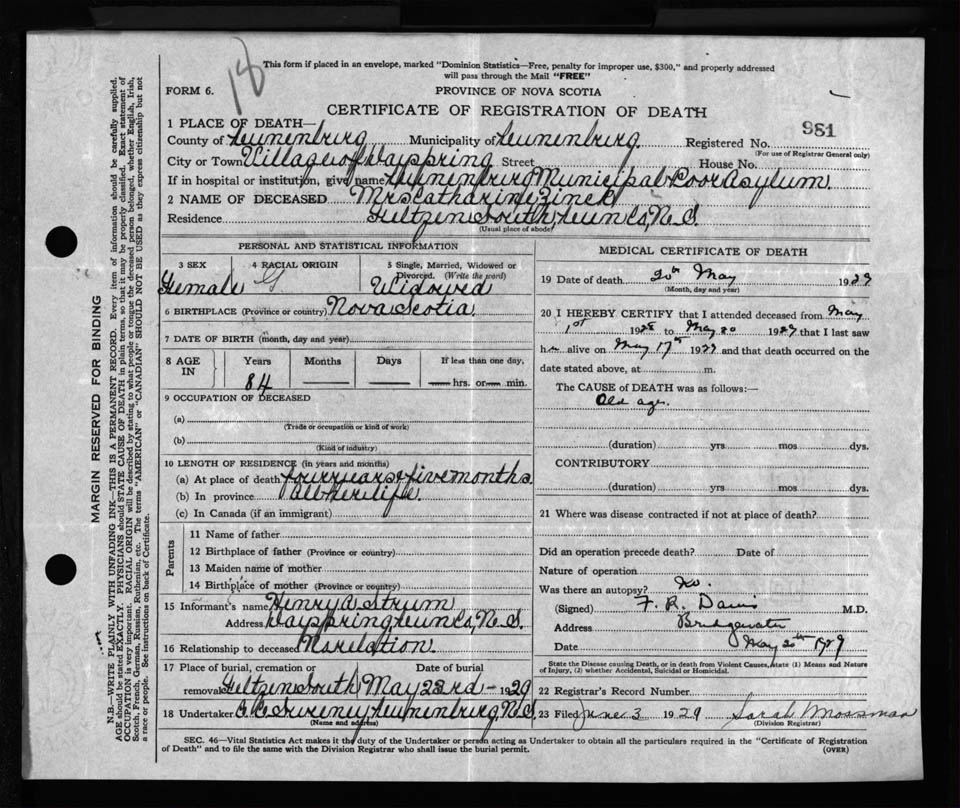 18
This form if placed in an envelope, marked "Dominion Statistics—Free, penalty for improper use, $300," and properly addressed
will pass through the Mail "FREE"
FORM 6.
PROVINCE OF NOVA SCOTIA
CERTIFICATE OF REGISTRATION OF DEATH
981
1 PLACE OF DEATH—
County of Lunenburg Municipality of Lunenburg Registered No.
(For use of Registrar General only)
City or Town Village of Dayspring Street House No.
If in hospital or institution, give name Lunenburg Municipal Poor Asylum.
2 NAME OF DECEASED Mrs Catharine Zinck
Residence Feltzen South Lun Co, N.S.
(Usual place of abode)
PERSONAL AND STATISTICAL INFORMATION
3 SEX
4 RACIAL ORIGIN
5 Single, Married, Widowed or
Divorced. (Write the word)
Female G Widowed
6 BIRTHPLACE (Province or country) Nova Scotia
7 DATE OF BIRTH (month, day and year)
8 AGE
IN
Years
Months
Days
If less than one day,
84
hrs. or min.
9 OCCUPATION OF DECEASED
(a)
(Trade or occupation or kind of work)
(b)
(Kind of industry)
10 LENGTH OF RESIDENCE (in years and months)
(a) At place of death four years & five months.
(b) In province all her life.
(c) In Canada (if an immigrant)
Parents
11 Name of father
12 Birthplace of father (Province or country)
13 Maiden name of mother
14 Birthplace of mother (Province or country)
15 Informant's name Henry A Strum
Address Dayspring Lun Co, N.S.
16 Relationship to deceased No relation.
17 Place of burial, cremation or Date of burial
removal Feltzen South May 23rd — 1929
18 Undertaker Sweeney Lunenburg, N.S.
(Name and address)
MEDICAL CERTIFICATE OF DEATH
19 Date of death 20th May 1929
(Month, day and year)
20 I HEREBY CERTIFY that I attended deceased from May
1st 1928 to May 20 1929 that I last saw
her alive on May 17th 1929 and that death occurred on the
date stated above, at m.
The CAUSE of DEATH was as follows:—
Old age.
(duration) yrs mos dys.
CONTRIBUTORY
(duration) yrs mos dys.
21 Where was disease contracted if not at place of death?
Did an operation precede death? Date of
Nature of operation
Was there an autopsy? No.
(Signed) F. R. Davis M.D.
Address Bridgewater
Date May 20th 1929
State the Disease causing Death, or in death from Violent Causes, state (1) Means and Nature
of Injury, (2) whether Accidental, Suicidal or Homicidal.
22 Registrar's Record Number
23 Filed June 3 1929 Sarah Mossman
(Division Registrar)
SEC. 46—Vital Statistics Act makes it the duty of the Undertaker or person acting as Undertaker to obtain all the particulars required in the "Certificate of Registration
of Death" and to file the same with the Division Registrar who shall issue the burial permit.
(OVER)
MARGIN RESERVED FOR BINDING
N.B.—WRITE PLAINLY WITH UNFADING INK—THIS IS A PERMANENT RECORD. Every item of information should be carefully supplied.
AGE should be stated EXACTLY. PHYSICIANS should STATE CAUSE OF DEATH in plain terms, so that it may be properly classified. Exact statement of
OCCUPATION is very important. RACIAL ORIGIN will be described by stating to what people or tongue the deceased person belonged, whether English, Irish,
Scotch, French, German, Russian, Ruthenian, etc. The terms "AMERICAN" or "CANADIAN" SHOULD NOT BE USED as they express citizenship but not
a race or people. See instructions on back of Certificate.